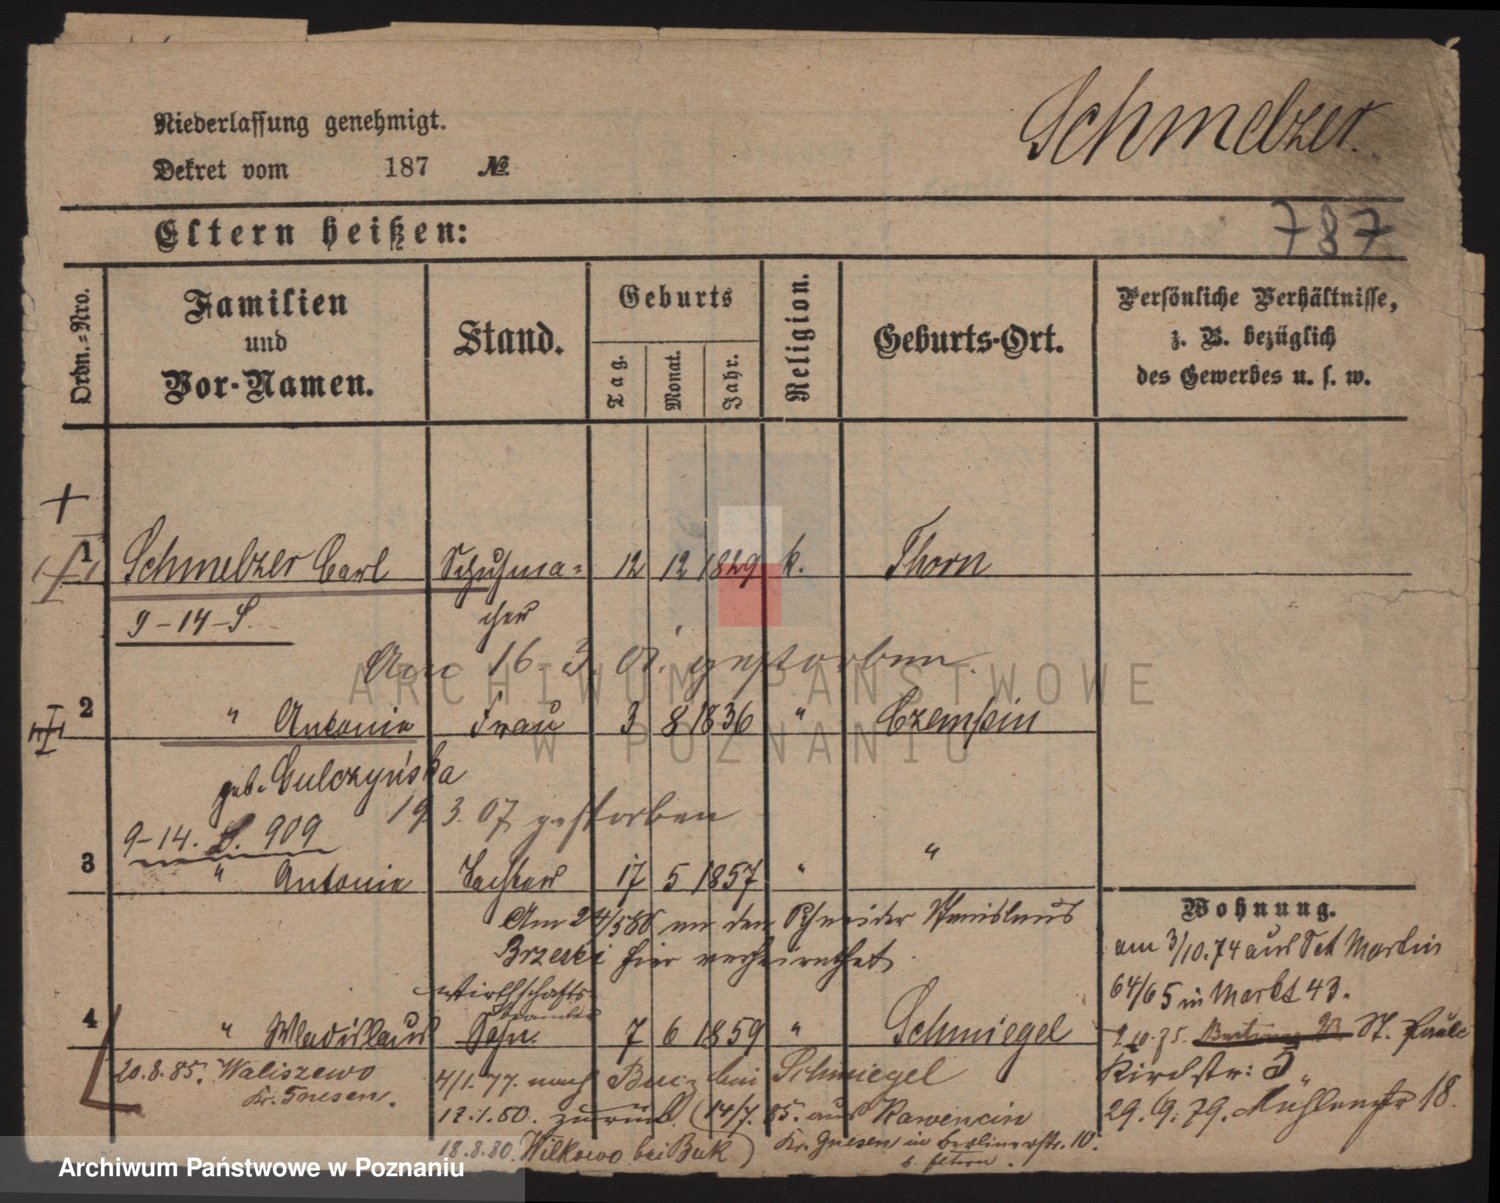 Schmelzer.
Niederlassung genehmigt.
Dekret vom 187 №
Eltern heißen:
787
Ordn.=Nro.
Familien
und
Vor-Namen.
Stand.
Geburts
Tag.
Monat.
Jahr.
Religion.
Geburts-Ort.
Persönliche Verhältnisse,
z. B. bezüglich
des Gewerbes u. s. w.
1 Schmelzer Carl Schuhma= 12 12 1829 k. Thorn
9-14-S. cher
Am 16 3 07. gestorben.
2 " Antonie Frau 3 8 1836 " Czempin
geb. Gulczyńska
19. 3. 07 gestorben
9-14. S. 909
3 " Antonie Tochter 17 5 1857 " "
Am 24/5 80 an den Schneider Stanislaus
Brzeski hier verheirathet.
Wohnung.
am 3/10.74 aus Sct Martin
64/65 in Markt 43.
Wirthschafts-
beamter
4 " Wladislaus Sohn. 7 6 1859 " Schmiegel
St. Paule
Kirchstr: 5
29. 9. 79. Mühlenstr 18.
20.8.85. Waliszewo
Kr. Gnesen.
4/1.77. nach bei Schmiegel
12.1.80. zurück. (14/7. 85. aus Rawencin
18.8.80. Wilkowo bei Buk) Kr. Gnesen in Berlinerstr. 10.
b. Eltern.
ARCHIWUM PAŃSTWOWE
W POZNANIU
Archiwum Państwowe w Poznaniu